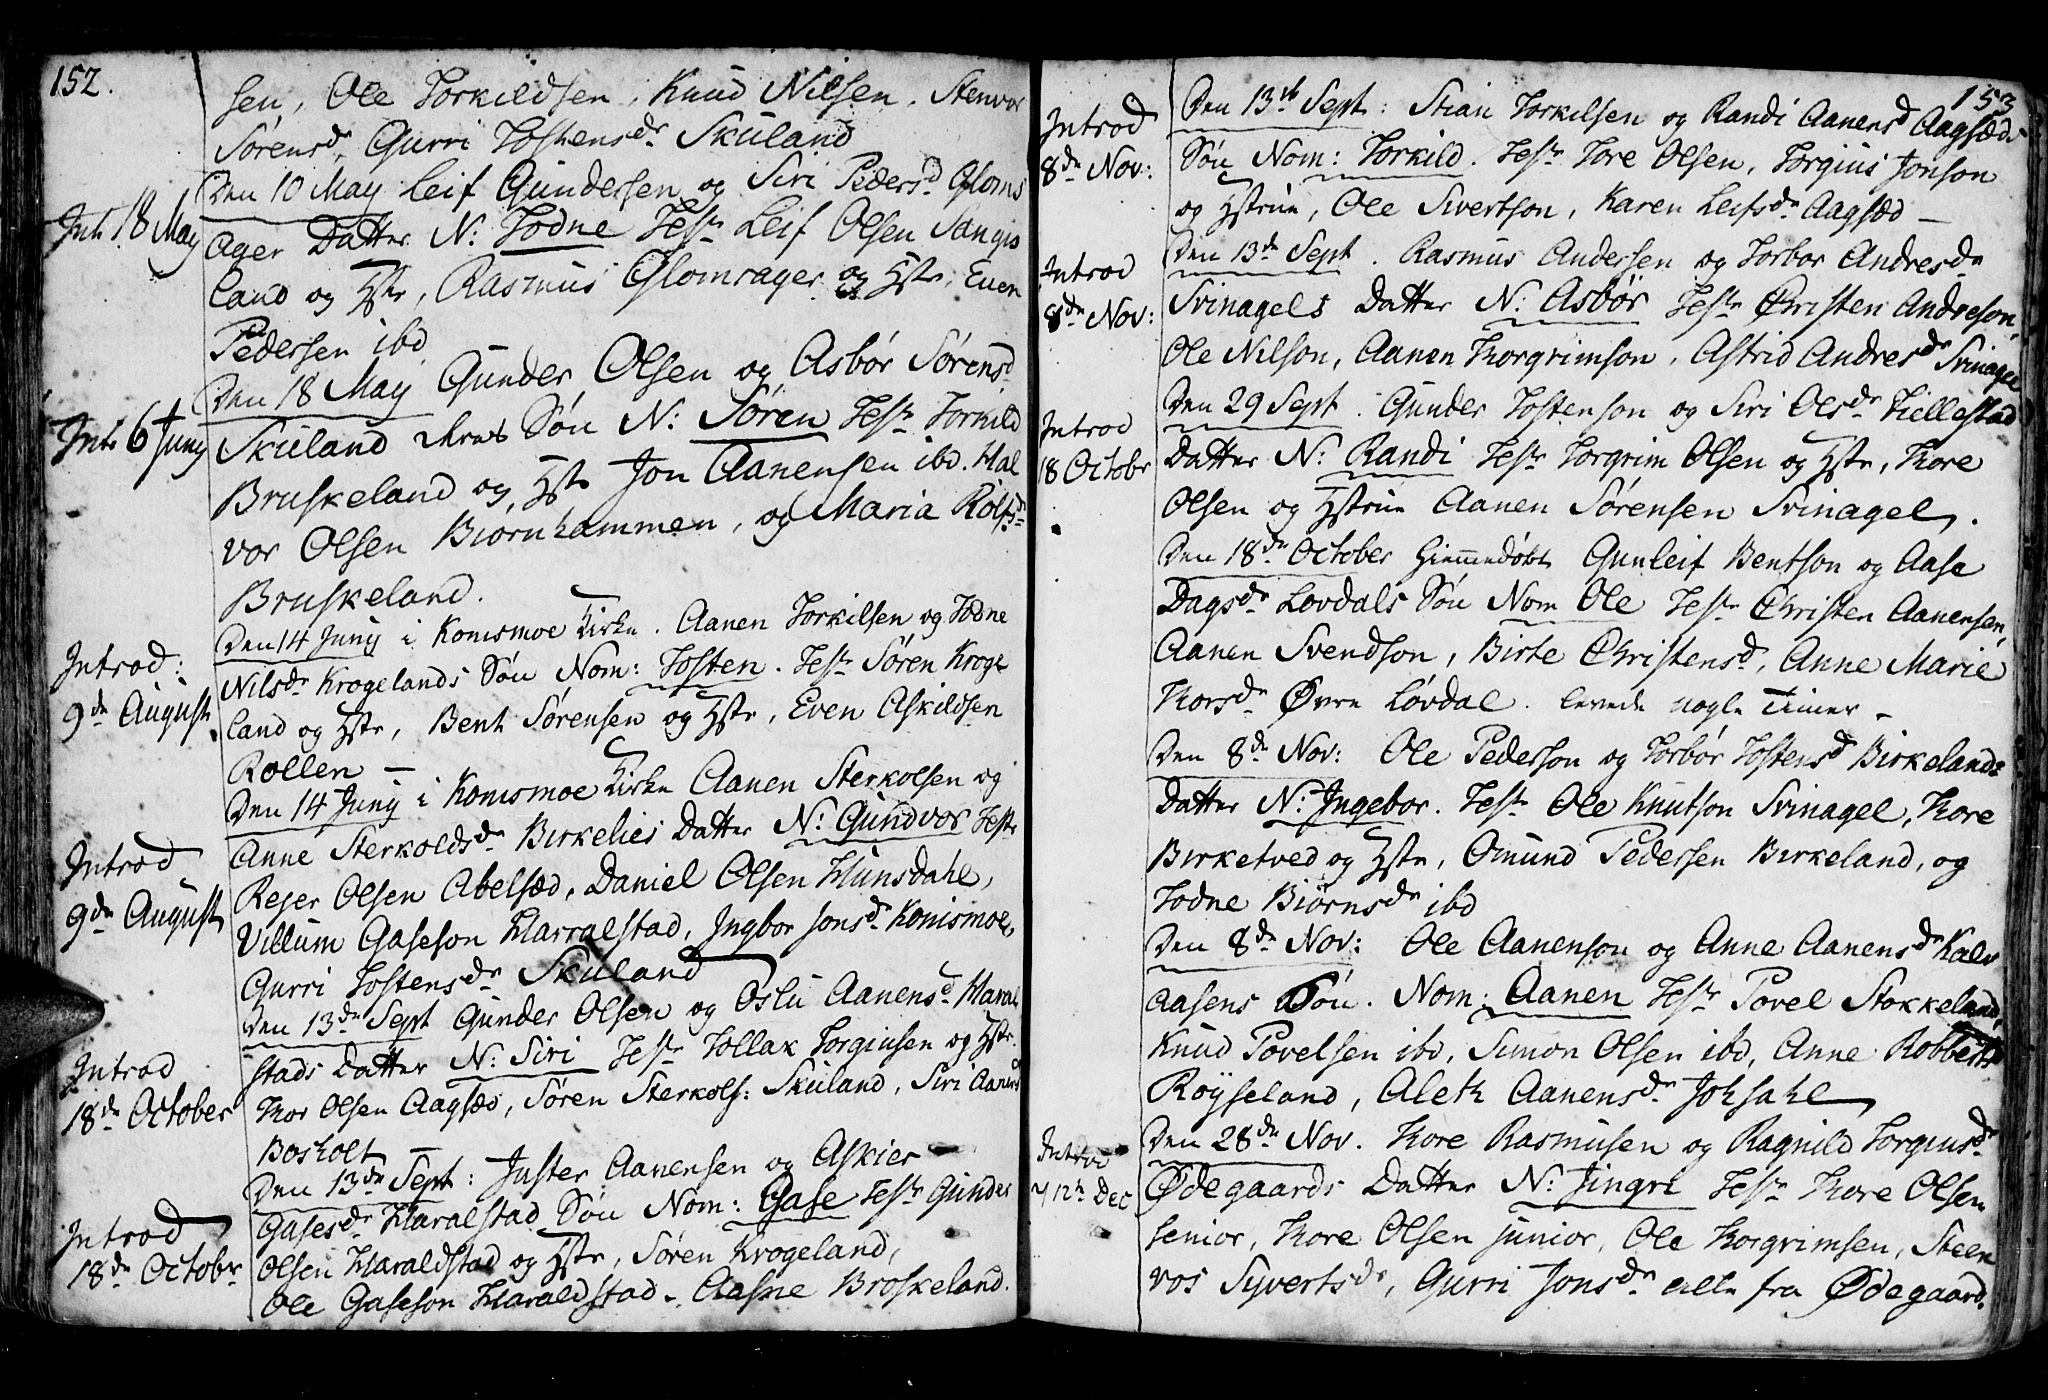 152.
sen, Ole Torkildsen, Knud Nilsen. Stenvor
Sørensdr, Gurri Tostensdr Skuland
Den 10 May Leif Gundersen og Siri Pedersd Gloms
Int. 18 May
Ager Datter N: Todne Testr Leif Olsen Sangis
land og Hstr, Rasmus Glomsager og Hstr, Even
Pedersen ibd
Den 18 May Gunder Olsen og Asbør Sørensd
Intr 6 Juny
Skuland Søn N: Søren Testr Torkild
Bruskeland og Hstr Jon Aanensen ibd. Hal
vor Olsen Biørnhammen, og Maria Rolfsdr
Bruskeland.
Den 14 Juny i Konismoe Kirke. Aanen Torkilsen og Todne
Introd:
9de August.
Nilsdr Krogelands Søn Nom: Tosten. Testr Søren Kroge
land og Hstr, Bent Sørensen og Hstr, Even Askildsen
Rollen —
Den 14 Juny i Konismoe Kirke Aanen Sterkolsen og
Introd
9de August
Anne Sterkoldsdr Birkelies Datter N: Gundvor Testr
Rejer Olsen Abelsæd, Daniel Olsen Hunsdahl,
Villum Gaseson Harralstad, Ingbor Jonsdr Konismoe,
Gurri Tostensdr Skuland
Den 13de Sept Gunder Olsen og Oslu Aanensd Haral
Introd
18de October
stads Datter N: Siri Testr Tollak Torgiusen og Hstr.
Thor Olsen Aagsæd, Søren Sterkols: Skuland, Siri Aanens
Bosholt —
Den 13de Sept: Juster Aanensen og Askier
Introd
18de Octobr
Gasesdr Haralstad Søn Nom: Gase Testr Gunder
Olsen Haraldstad og Hstr, Søren Krogeland,
Ole Gaseson Haraldstad. Aasne Broskeland.
153
Introd
8de Nov:
Den 13de Sept: Stian Torkilsen og Randi Aanensd Aagsæds
Søn Nom: Torkild. Testr Tore Olsen, Torgius Jonson
og Hstrue, Ole Sivertson, Karen Leifsdr Aagsæd —
Introd
8de Nov:
Den 13de Sept. Rasmus Andersen og Torbor Andresdr
Svinagels Datter N: Asbør Testr Christen Andreson,
Ole Nilson, Aanen Thorgrimson, Astrid Andresdr Svinagel
Introd
18 Octobr
Den 29 Sept. Gunder Tostenson og Siri Olsdr Tiellestad
Datter N: Randi Testr Torgrim Olsen og Hstr, Thore
Olsen og Hstrue Aanen Sørensen Svinagel.
Den 18de October Hiemmedøbt Gunleif Bentson og Aase
Dagsdr Lovdals Søn Nom Ole Testr Christen Aanensen,
Aanen Svendson, Birte Christensd, Anne Marie
Thorsdr Øvre Løvdal. levede nogle Timer —
Den 8de Nov: Ole Pederson og Torbør Tostensd Birkelands
Datter N: Ingebor. Testr Ole Knutson Svinagel, Thore
Birketved og Hstr, Omund Pedersen Birkeland, og
Todne Biørnsdr ibd
Den 8de Nov: Ole Aanenson og Anne Aanensdr Kalv
aasens Søn. Nom: Aanen Testr Povel Stokkeland,
Knud Povelsen ibd, Simon Olsen ibd, Anne Robberts
Røyseland, Aleth Aanensdr Johsahl
Introd
12te Dec
Den 28de Nov. Thore Rasmusen og Ragnild Torgiusdr
Ødegaards Datter N: Jingri Testr Thore Olsen
senior, Thore Olsen junior, Ole Thorgrimsen, Steen
vos Syvertsdr, Gurri Jonsdr alle fra Ødegaard.